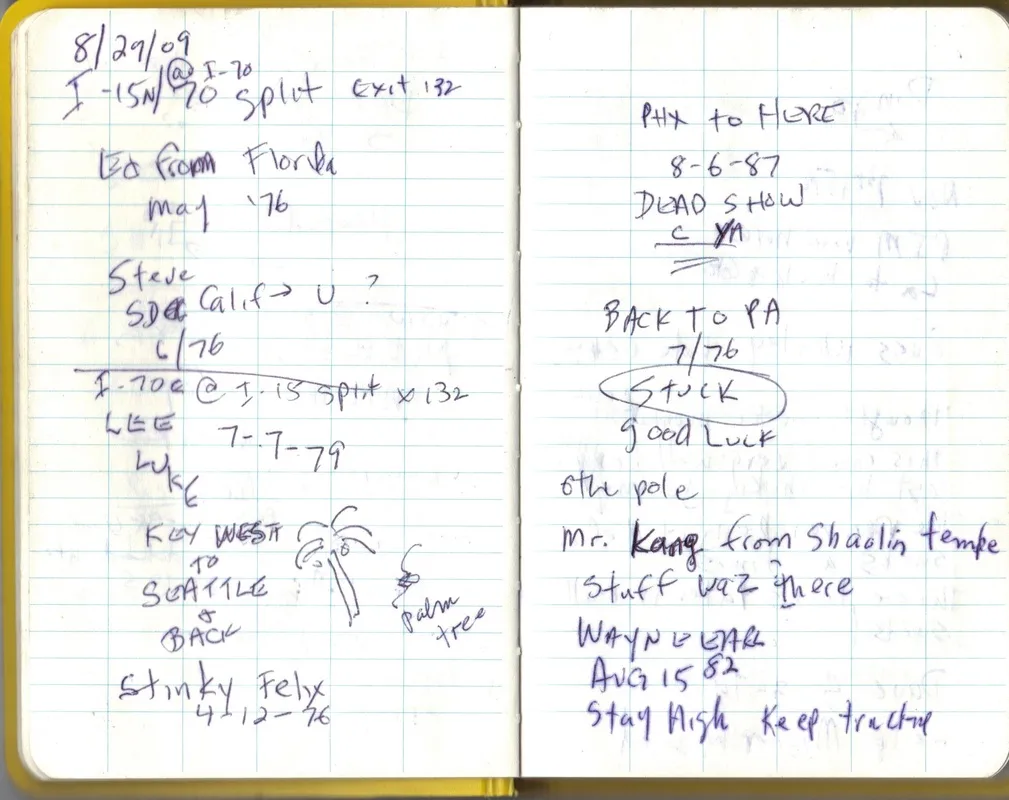 8/29/09
I-15N/@ I-70
70 split Exit 132
Ed from Florida
may '76
Steve
SD Calif → U ?
6/76
I-70E @ I-15 split x 132
LEE
7-7-79
LUKE
KEY WEST
TO
SEATTLE
&
BACK
palm
tree
Stinky Felix
4-12-76
PHX to HERE
8-6-87
DEAD SHOW
C YA
BACK TO PA
7/76
STUCK
good Luck
oth pole
Mr. Kang from Shaolin tempe
Stuff waz there
WAYNE EARL
AUG 15 82
Stay High Keep